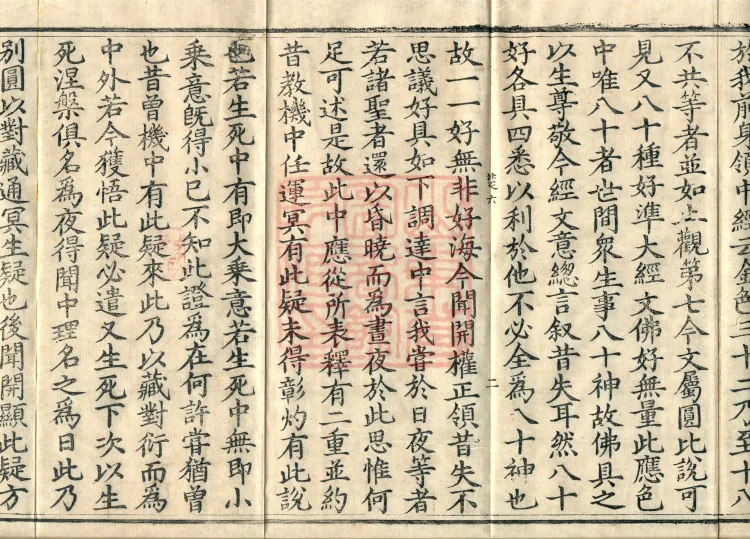 於我前身領中經云金色三十二乃至十八
不共等者並如止觀第七今文屬圓比說可
見又八十種好準大經文佛好無量此應色
中唯八十者世間眾生事八十神故佛具之
以生尊敬今經文意總言叙昔失耳然八十
好各具四悉以利於他不必全為八十神也
故一一好無非好海今聞開權正領昔失不
思議好具如下調達中言我嘗於日夜等者
若諸聖者還以昏曉而為晝夜於此思惟何
足可述是故此中應從所表釋有二重並約
昔教機中任運冥有此疑未得彰灼有此說
也若生死中有即大乘意若生死中無即小
乘意既得小已不知此證為在何許嘗猶曾
也昔曾機中有此疑來此乃以藏對衍而為
中外若今獲悟此疑必遣又生死下次以生
死涅槃俱名為夜得聞中理名之為日此乃
別圓以對藏通冥生疑也後聞開顯此疑方
六
二